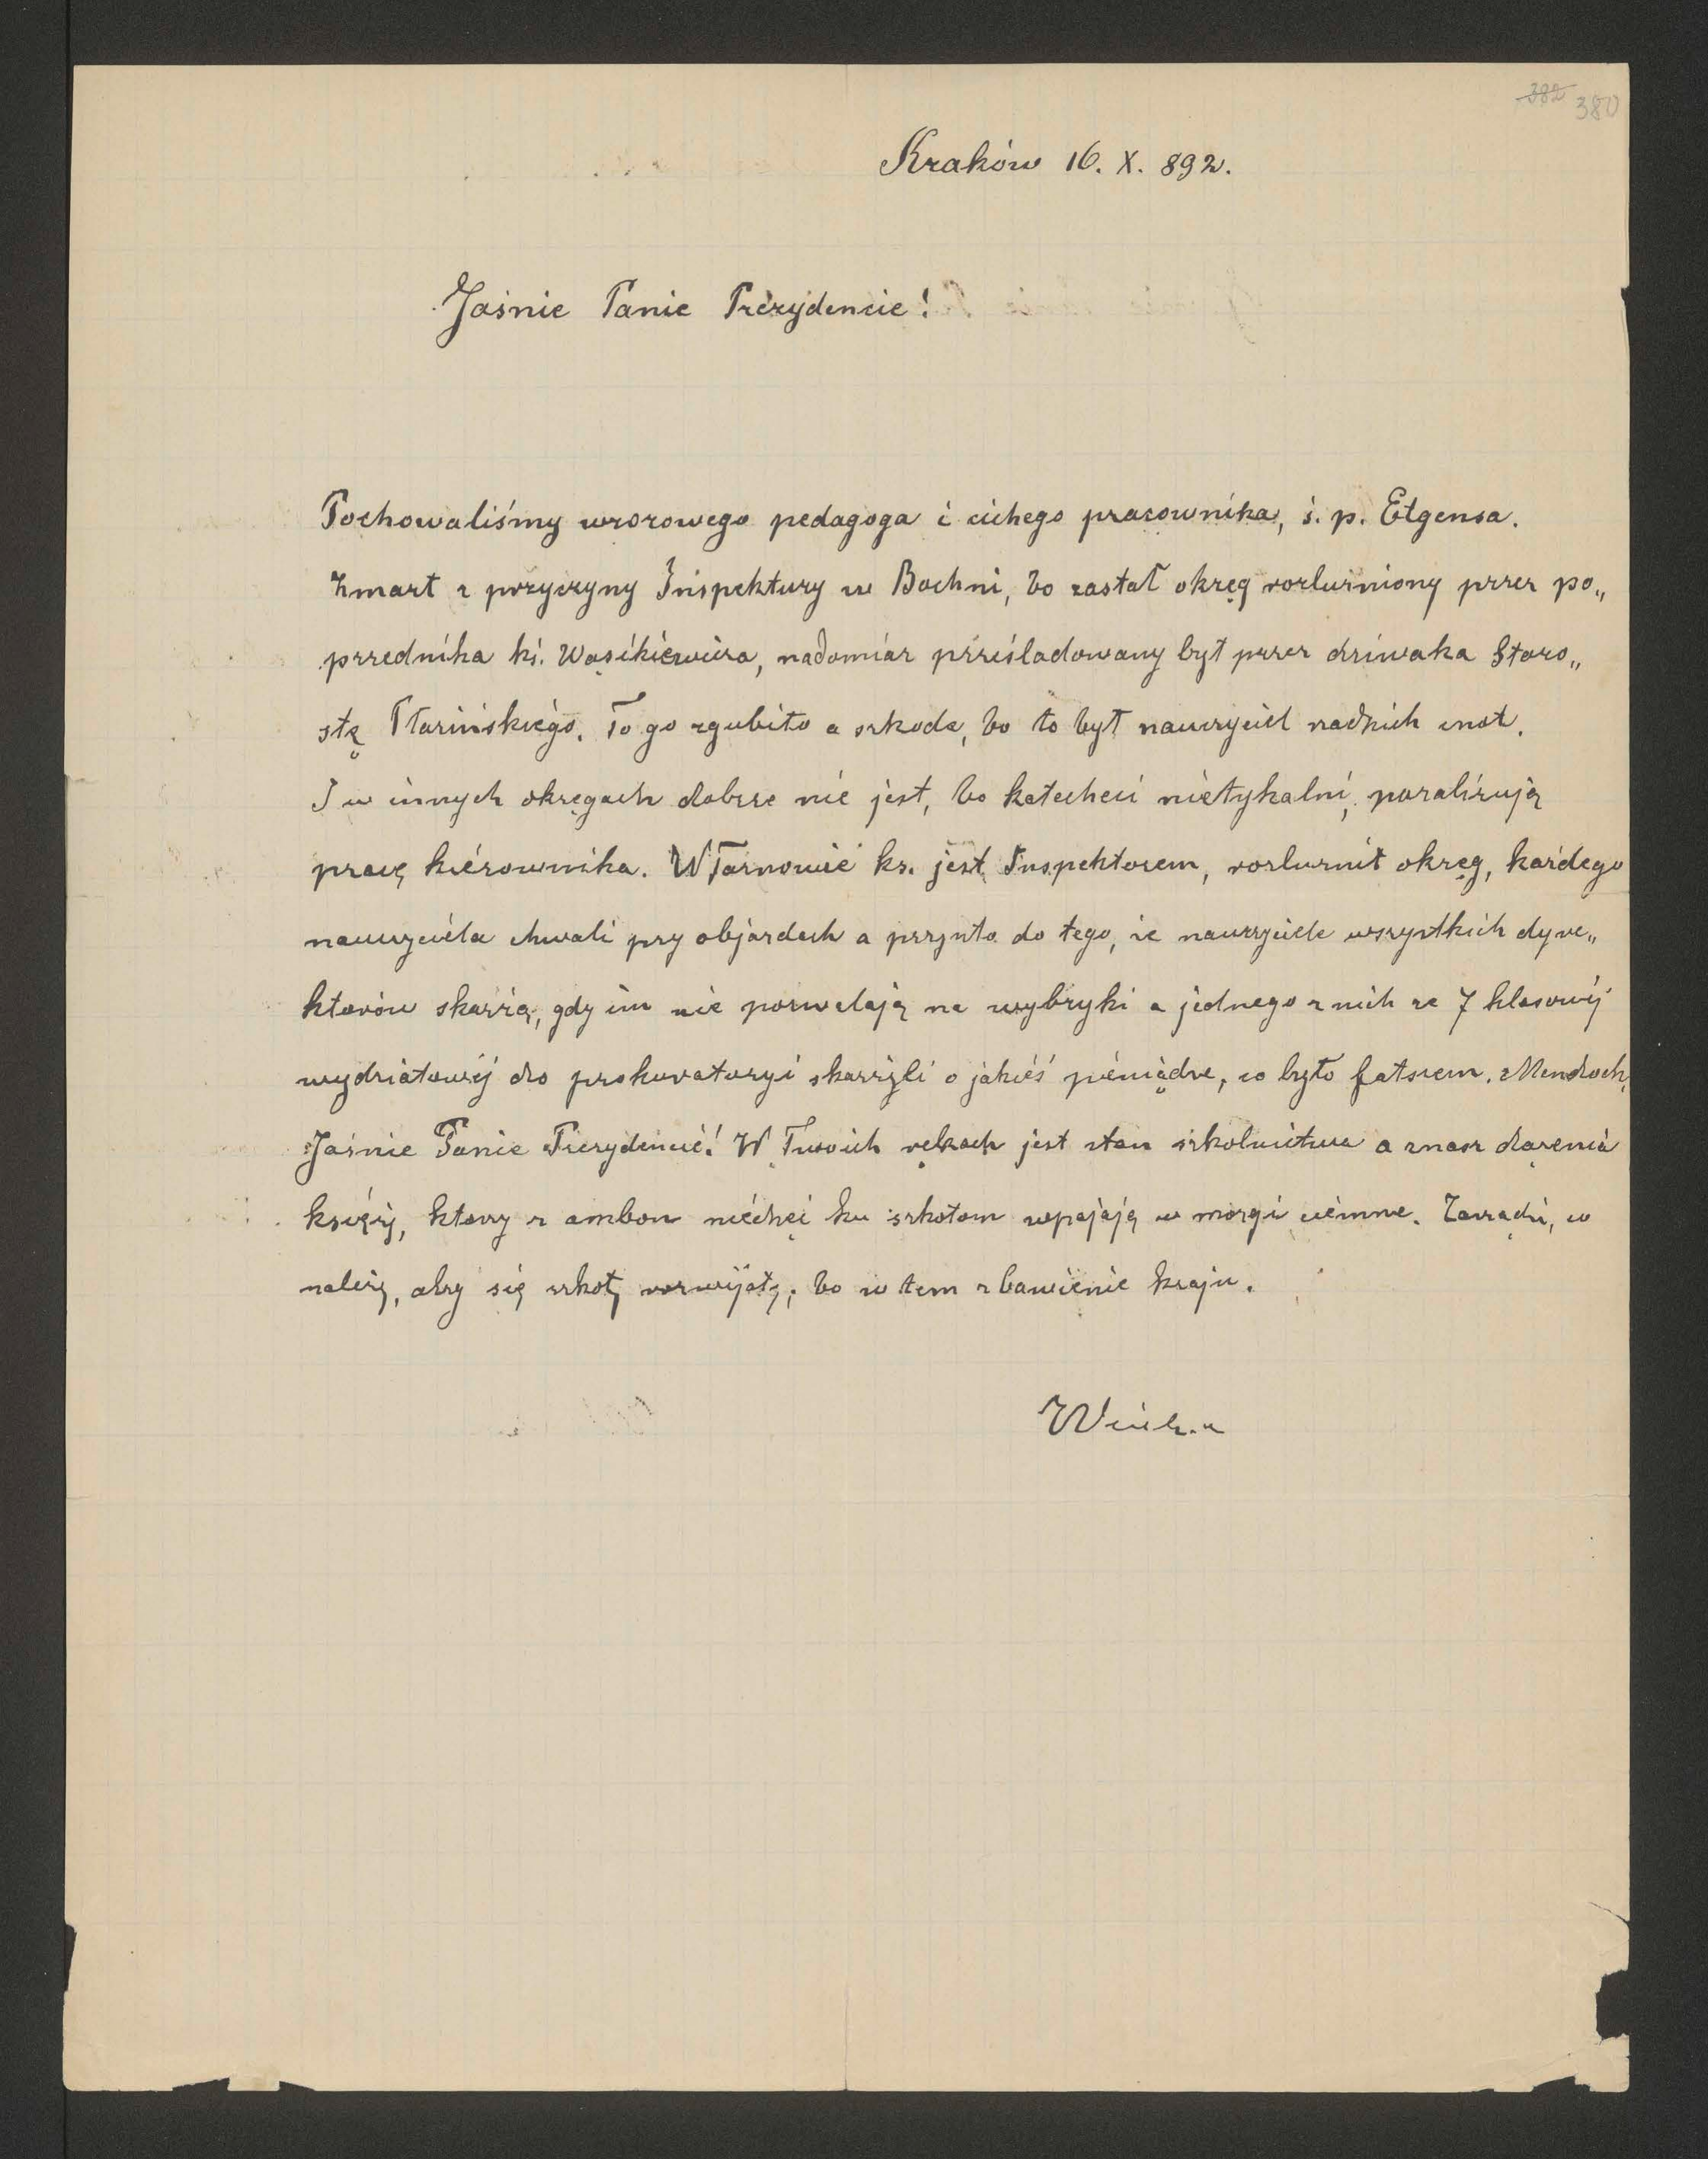 382 380
Kraków 16. X. 892.
Jaśnie Panie Prezydencie!
Pochowaliśmy wzorowego pedagoga i cichego pracownika, ś. p. Elgensa.
Zmarł z przyczyny Inspektury w Bochni, bo zastał okręg rozluźniony przez po„
przednika ks. Wąsikiewicza, nadomiar prześladowany był przez dziwaka Staro„
stę Płazińskiego. To go zgubiło a szkoda, bo to był nauczyciel rzadkich cnot.
I w innych okręgach dobrze nie jest, bo katecheci nietykalni, paraliżują
pracę kierownika. W Tarnowie ks. jest Inspektorem, rozluźnił okręg, każdego
nauczyciela chwali przy objazdach a przyszło do tego, że nauczyciele wszystkich dyre„
ktorów skarżą, gdy im nie pozwalają na wybryki a jednego z nich ze 7 klasowéj
wydziałowéj do prokuratoryi skarżyli o jakieś pieniądze, co było fałszem.
Jaśnie Panie Prezydencie! W Twoich rękach jest stan szkolnictwa a znasz dążenia
księży, ktorzy z ambon niechęć ku szkołom wpajają w mózgi ciemne. Zarządź, co
należy, aby się szkoły rozwijały, bo w tem zbawienie kraju.